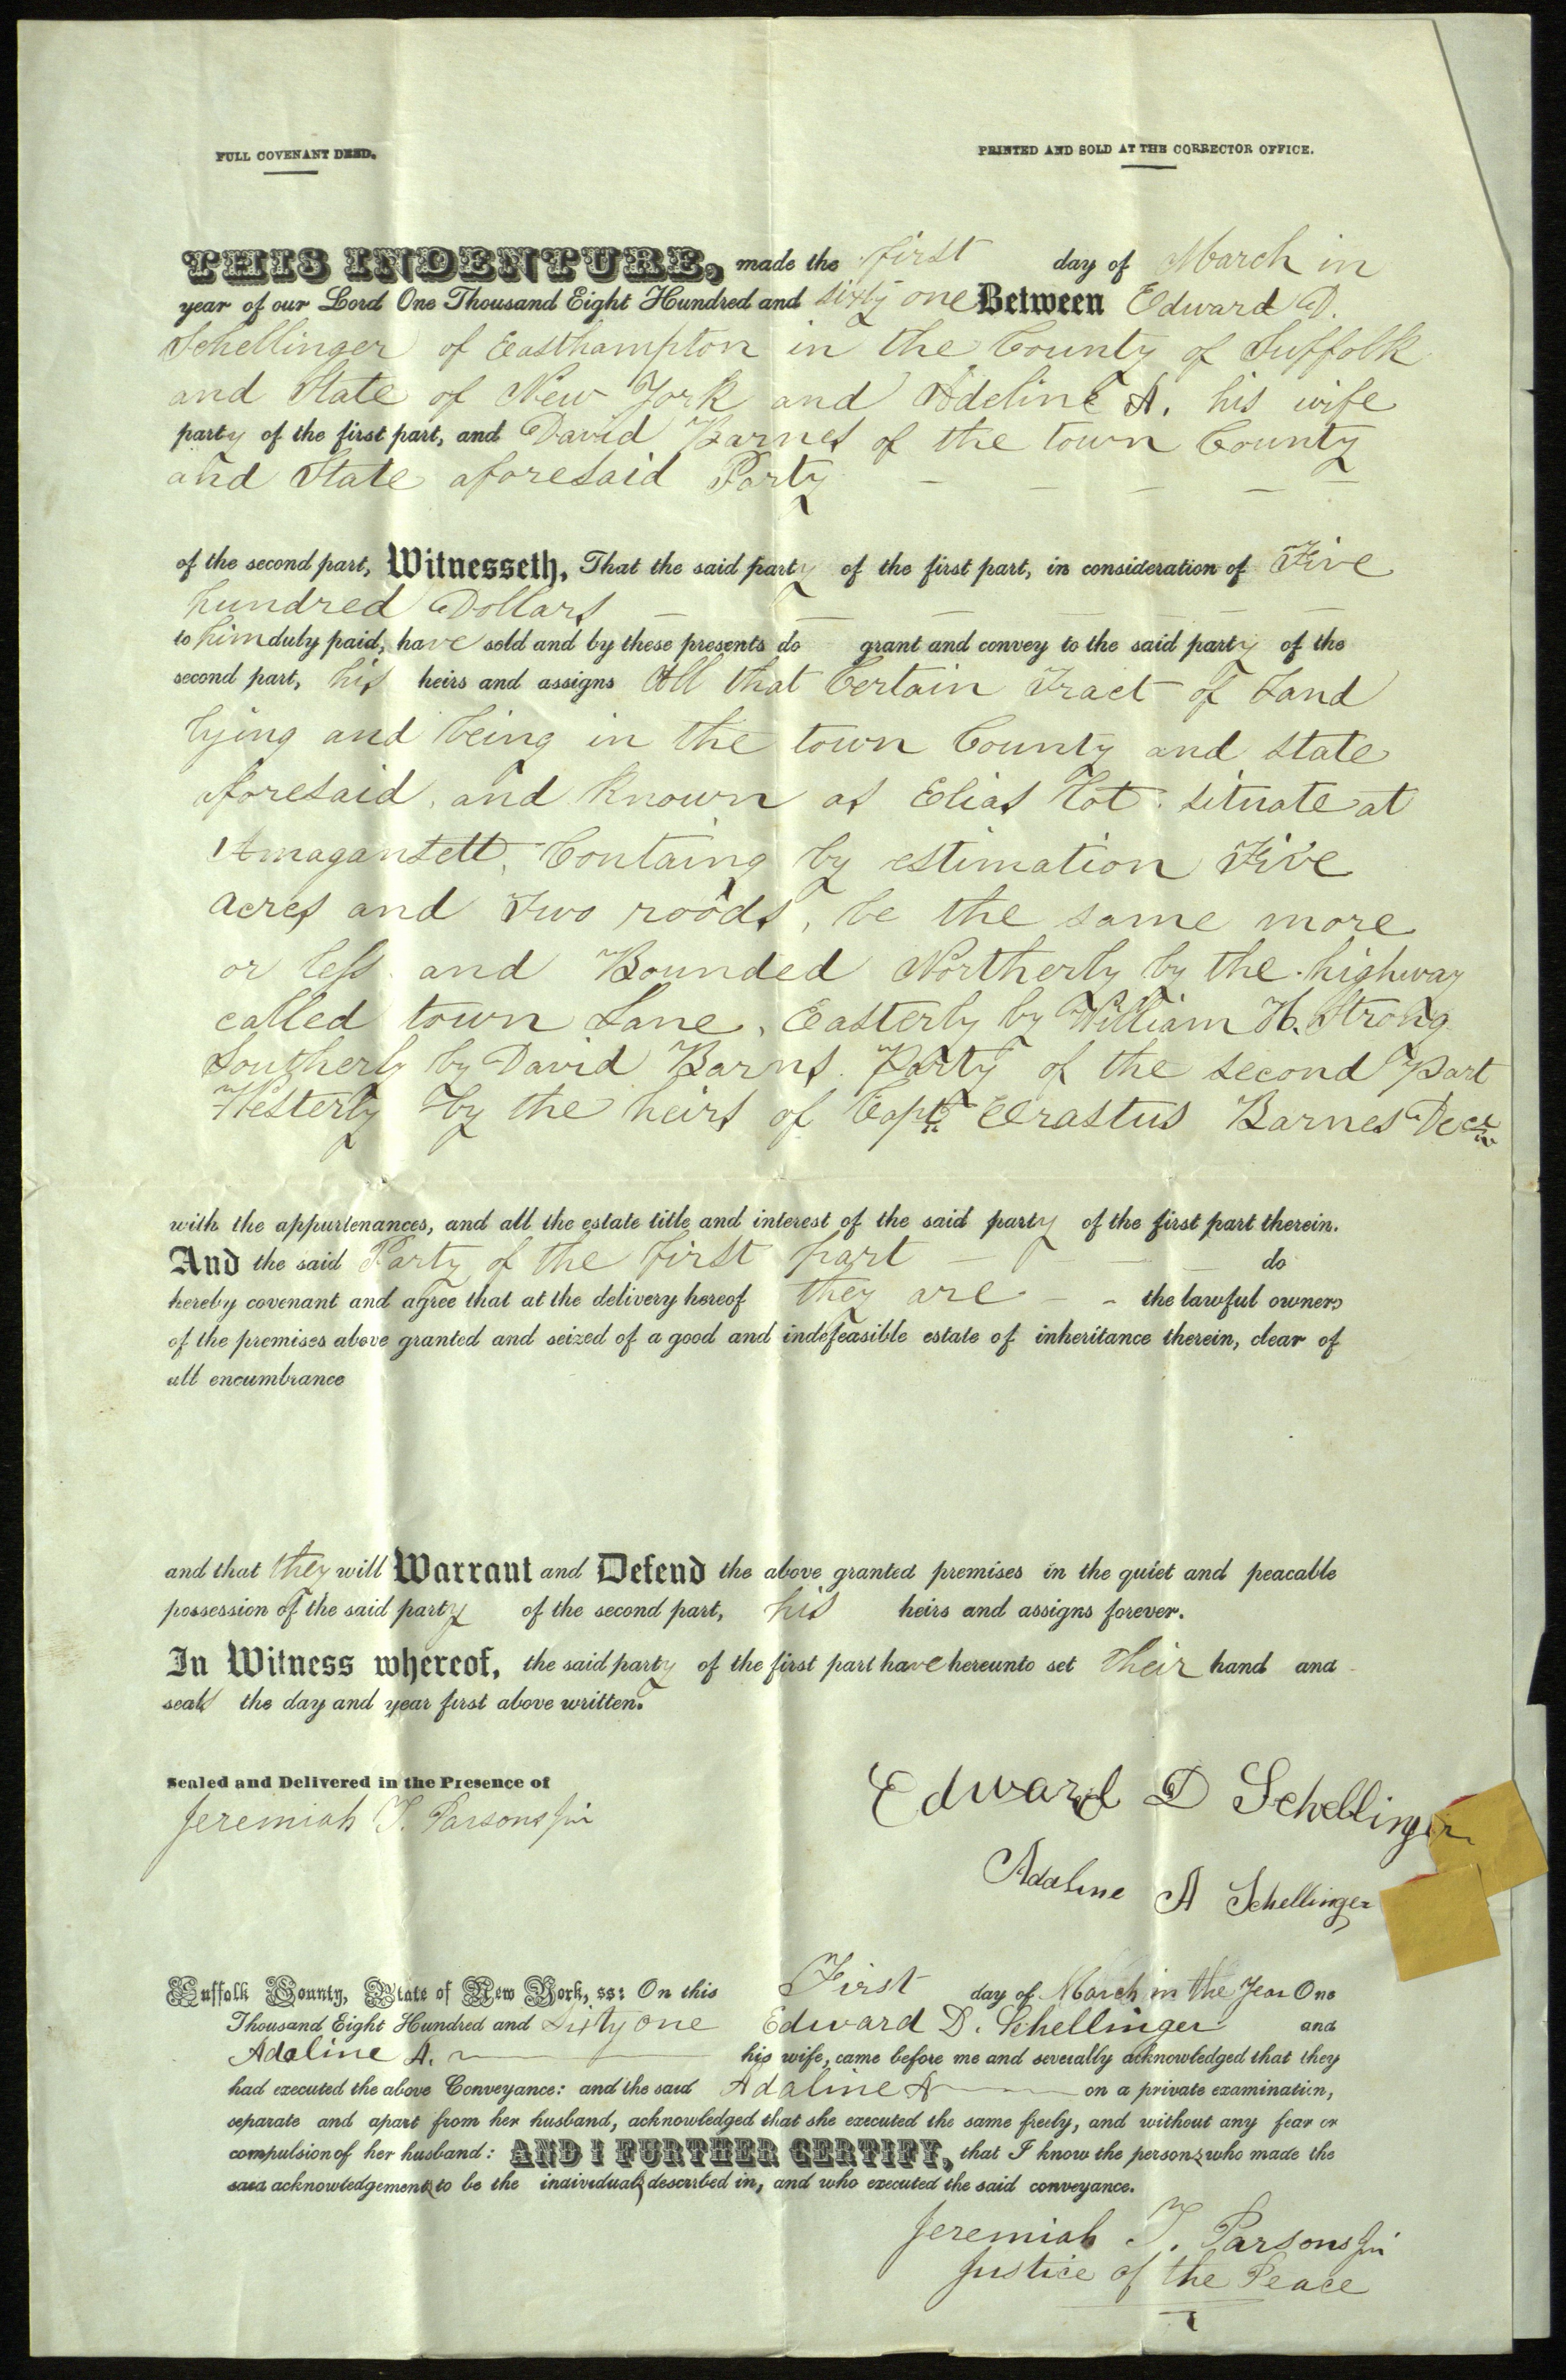 FULL COVENANT DEED.
PRINTED AND SOLD AT THE CORRECTOR OFFICE.
THIS INDENTURE, made the first day of March in
year of our Lord One Thousand Eight Hundred and sixty one Between Edward D.
Schellinger of Easthampton in the County of Suffolk
and State of New York and Adeline A. his wife
party of the first part, and David Barnes of the town County
and State aforesaid Party
of the second part, Witnesseth, That the said party of the first part, in consideration of Five
hundred Dollars
to him duly paid, have sold and by these presents do grant and convey to the said party of the
second part, his heirs and assigns All that Certain Tract of Land
lying and being in the town County and state
aforesaid, and Known as Elias Lot. situate at
Amagansett, Containg by estimation Five
acres and Two roods, be the same more
or less. and Bounded Northerly by the highway
called town Lane, Easterly by William H. Strong
Southerly by David Barns. Party of the second Part
Westerly by the heirs of Capt. Erastus Barnes Decd
with the appurtenances, and all the estate title and interest of the said party of the first part therein.
And the said Party of the first part do
hereby covenant and agree that at the delivery hereof they are the lawful owners
of the premises above granted and seized of a good and indefeasible estate of inheritance therein, clear of
all encumbrance
and that they will Warrant and Defend the above granted premises in the quiet and peacable
possession of the said party of the second part, his heirs and assigns forever.
In Witness whereof, the said party of the first part have hereunto set their hand and
seals the day and year first above written.
Sealed and Delivered in the Presence of
Jeremiah T. Parsons Jur
Edward D Schellinger
Adaline A Schellinger
Suffolk County, State of New York, ss: On this First day of March in the Year One
Thousand Eight Hundred and Sixty one Edward D. Schellinger and
Adaline A. his wife, came before me and severally acknowledged that they
had executed the above Conveyance: and the said Adaline A on a private examination,
separate and apart from her husband, acknowledged that she executed the same freely, and without any fear or
compulsion of her husband: AND I FURTHER CERTIFY, that I know the persons who made the
said acknowledgements to be the individuals described in, and who executed the said conveyance.
Jeremiah T. Parsons Jur
Justice of the Peace